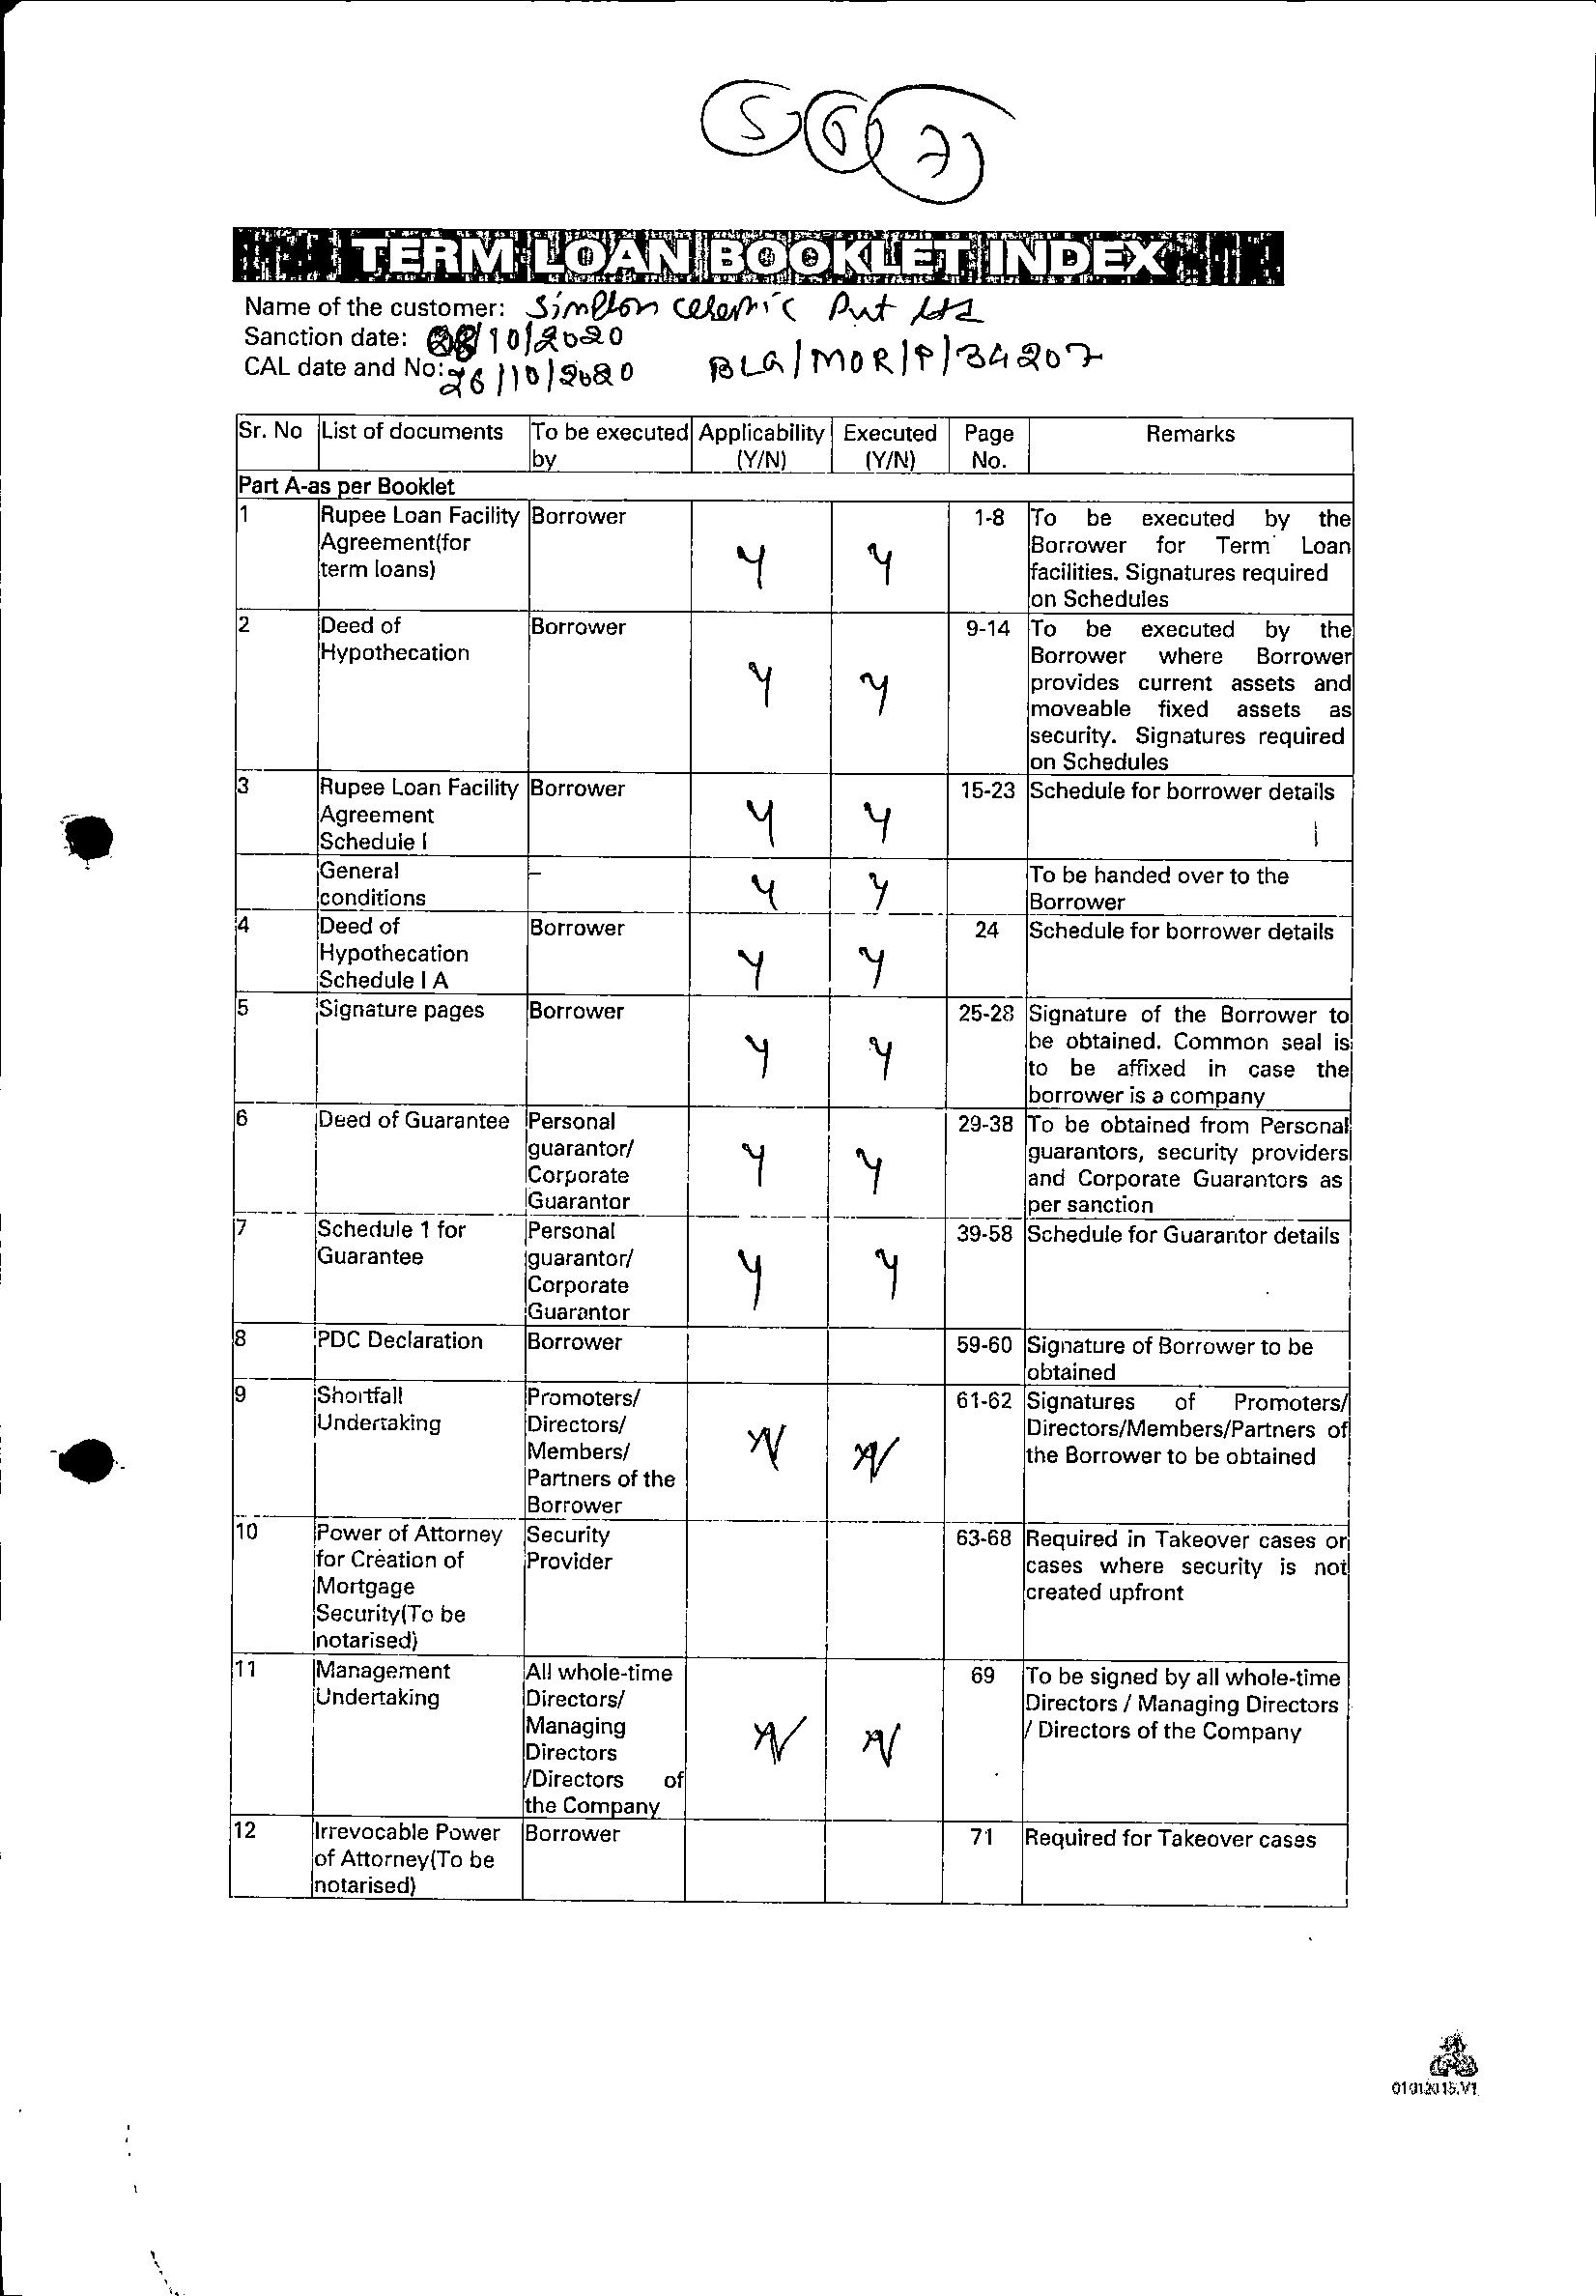 5 6 7
TERM LOAN BOOKLET INDEX
Name of the customer: Simplon ceramic Pvt Ltd
Sanction date: /10/2020
CAL date and No: 26/10/2020 BLG/MOR/P/34207
Sr. No List of documents To be executed by Applicability (Y/N) Executed (Y/N) Page No. Remarks
Part A-as per Booklet
1 Rupee Loan Facility Agreement(for term loans) Borrower Y Y 1-8 To be executed by the Borrower for Term Loan facilities. Signatures required on Schedules
2 Deed of Hypothecation Borrower Y Y 9-14 To be executed by the Borrower where Borrower provides current assets and moveable fixed assets as security. Signatures required on Schedules
3 Rupee Loan Facility Agreement Schedule I Borrower Y Y 15-23 Schedule for borrower details
General conditions – Y Y To be handed over to the Borrower
4 Deed of Hypothecation Schedule I A Borrower Y Y 24 Schedule for borrower details
5 Signature pages Borrower Y Y 25-28 Signature of the Borrower to be obtained. Common seal is to be affixed in case the borrower is a company
6 Deed of Guarantee Personal guarantor/ Corporate Guarantor Y Y 29-38 To be obtained from Personal guarantors, security providers and Corporate Guarantors as per sanction
7 Schedule 1 for Guarantee Personal guarantor/ Corporate Guarantor Y Y 39-58 Schedule for Guarantor details
8 PDC Declaration Borrower 59-60 Signature of Borrower to be obtained
9 Shortfall Undertaking Promoters/ Directors/ Members/ Partners of the Borrower N N 61-62 Signatures of Promoters/ Directors/Members/Partners of the Borrower to be obtained
10 Power of Attorney for Creation of Mortgage Security(To be notarised) Security Provider 63-68 Required in Takeover cases or cases where security is not created upfront
11 Management Undertaking All whole-time Directors/ Managing Directors /Directors of the Company N N 69 To be signed by all whole-time Directors / Managing Directors / Directors of the Company
12 Irrevocable Power of Attorney(To be notarised) Borrower 71 Required for Takeover cases
01012015.V1